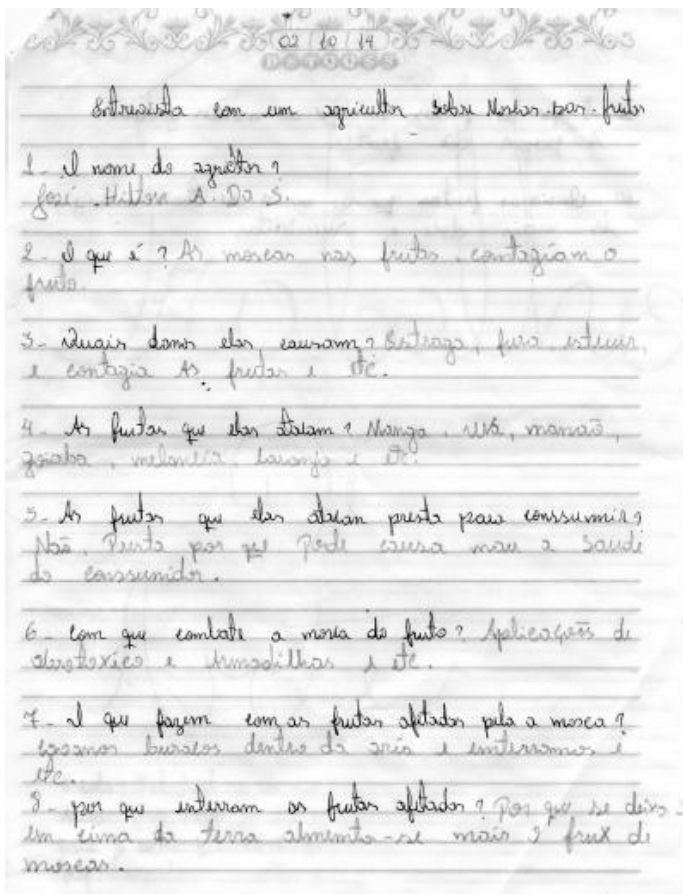 02 / 10 / 14
Entrevista com um agricultor sobre Moscas-das-frutas
1- O nome do agricultor?
José Hilton A. Do S.
2- O que é? As moscas nas frutas, contagiam o
fruto.
3- Quais danos elas causam? Estraga, fura,
e contagia As frutas e etc.
4- As frutas que elas atacam? Manga, uva, mamão,
goiaba, melancia, laranja e etc.
5- As frutas que elas atacan presta para conssumir?
Não. Presta por que Pode causa mau a Saude
do conssumidor.
6- com que combate a mosca do fruto? Aplicações de
e Armadilhas e etc.
7- O que fazem com as frutas afetadas pela a mosca?
buracos dentro da e enterramos e
etc.
8- por que enterram as frutas afetadas? Por que se deixa
em cima da terra almenta-se mais o de
moscas.